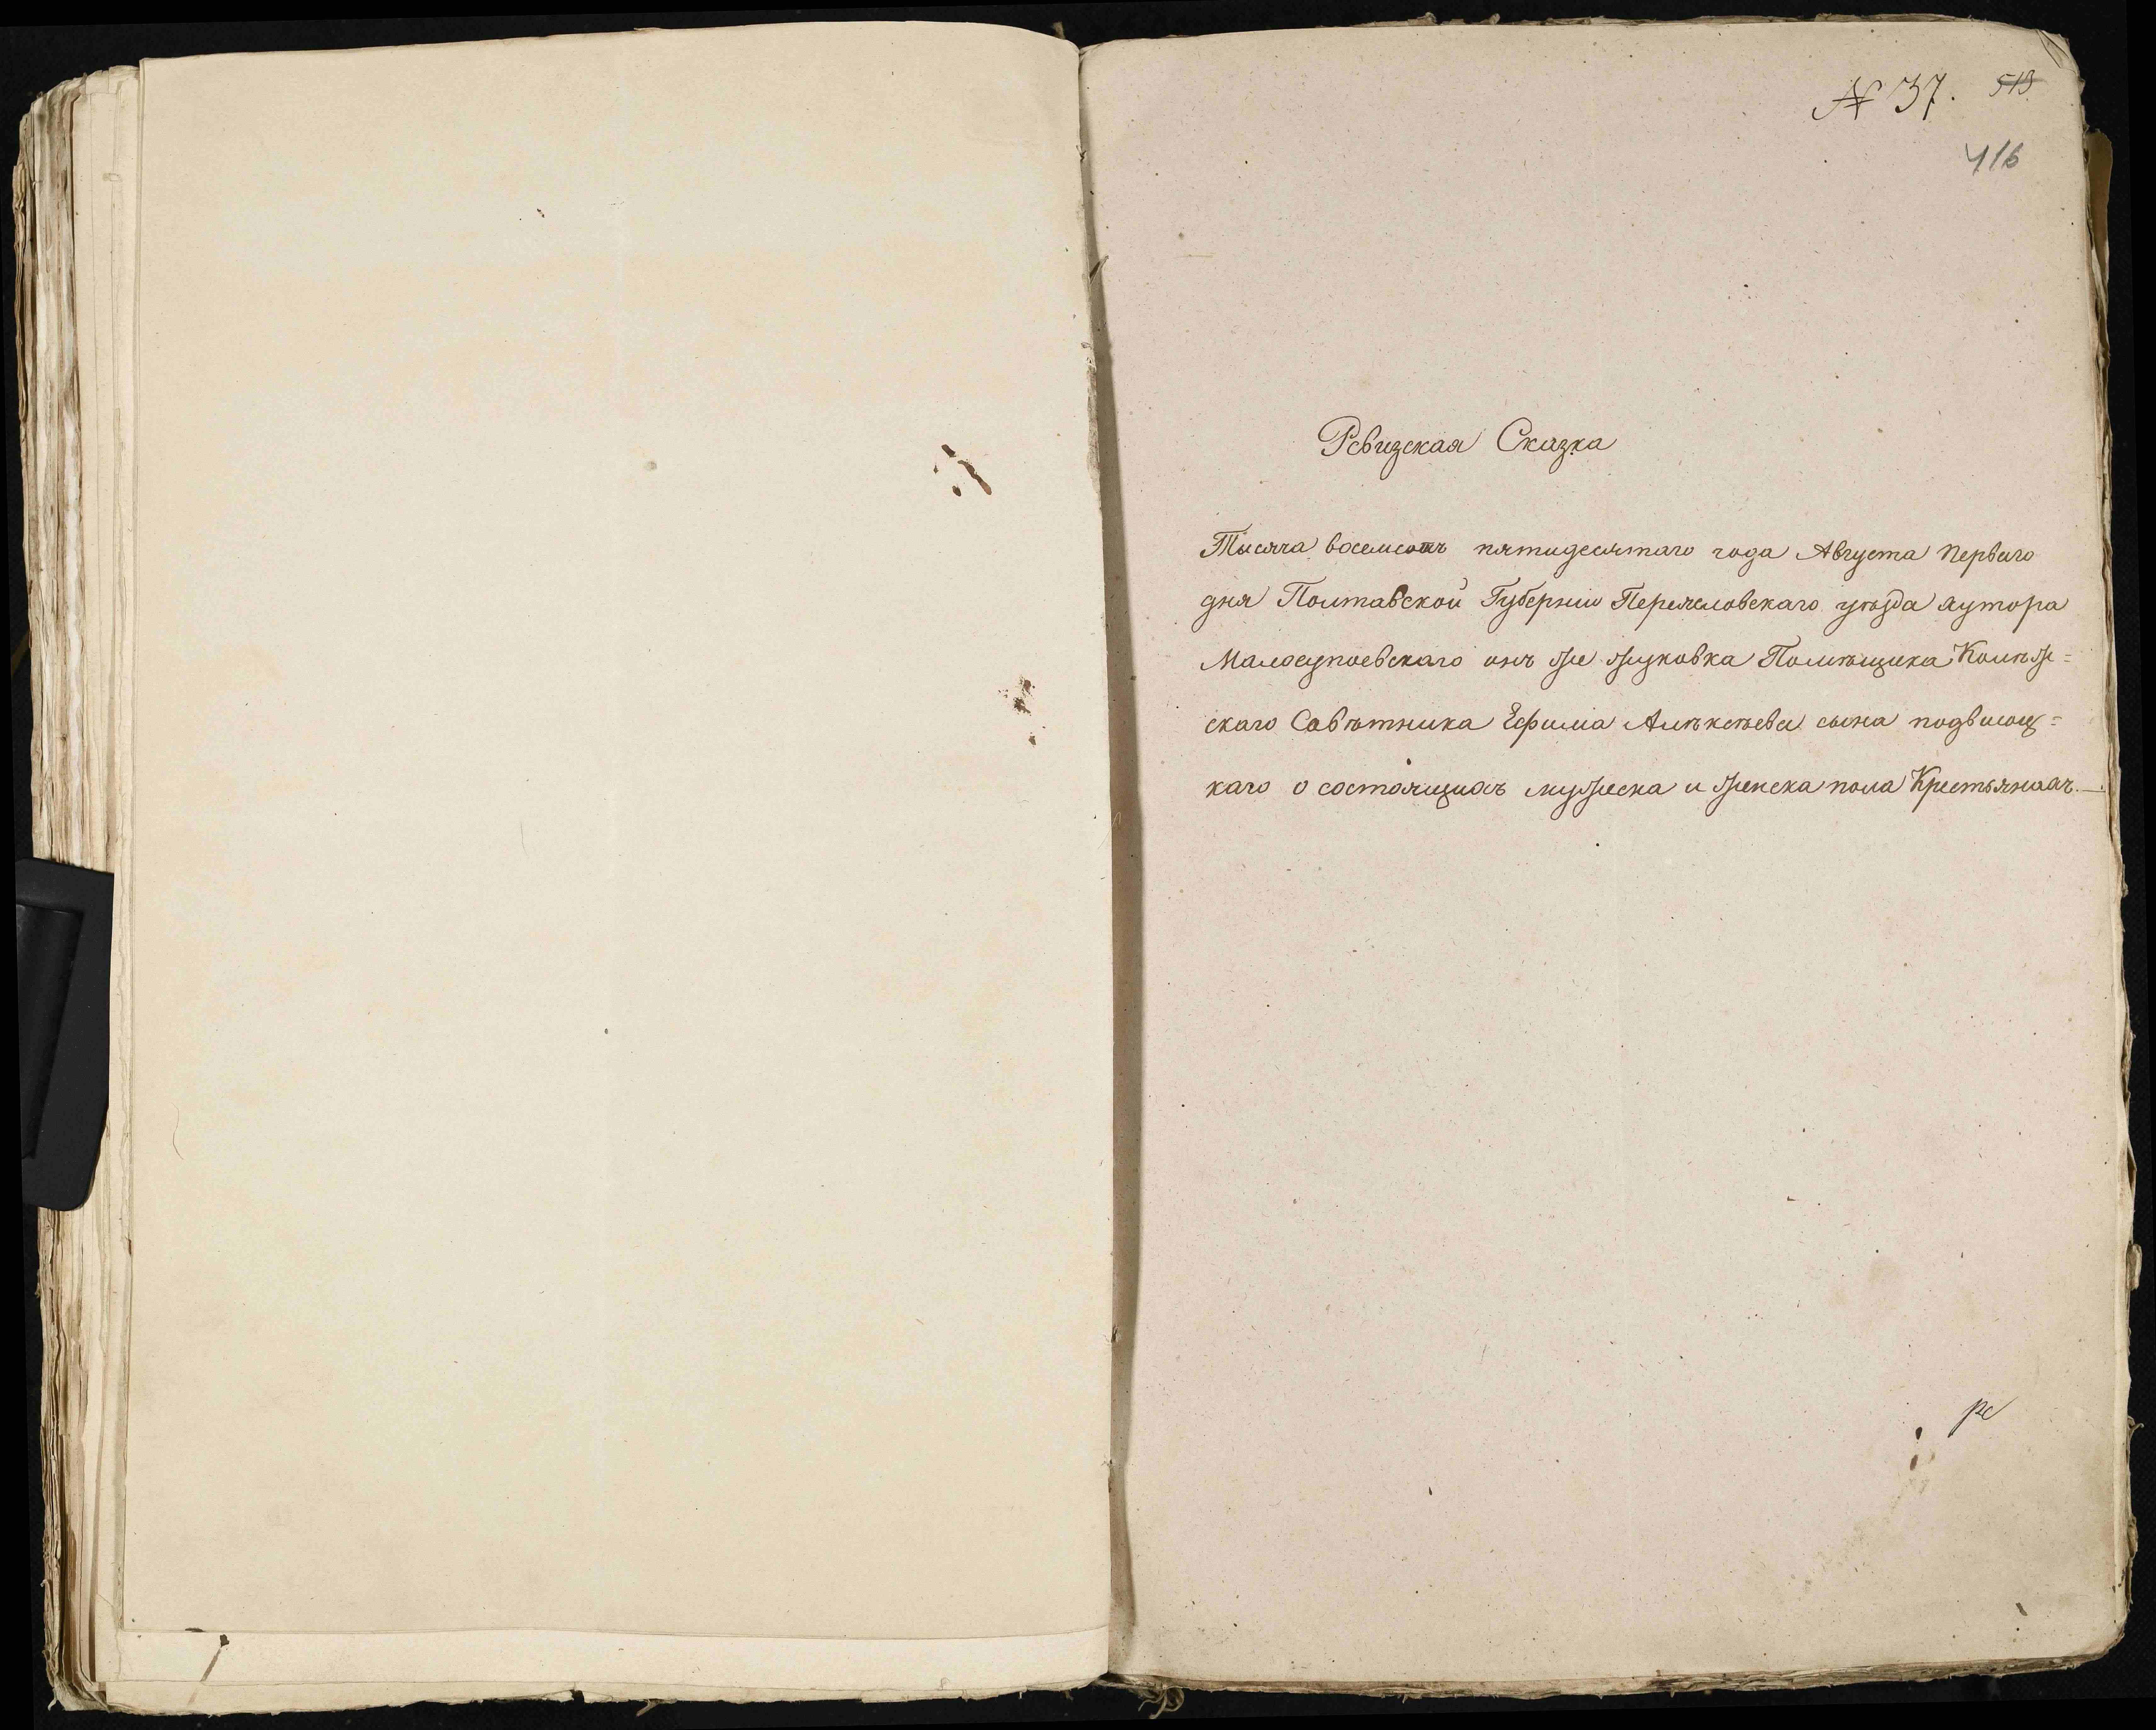 № 37. 513
416
Ревизская Сказка
Тысяча восемсотъ пятидесятаго года Августа Первого
дня Полтавской Губернии Переясловскаго уѣзда хутора
Малосупоевскаго онъ же жуковка Помѣщика Колѣж=
скаго Совѣтника Ефима Алѣксѣева сына подвысоц=
каго о состоящихъ мужеска и женска пола Крестьянахъ.—
ре